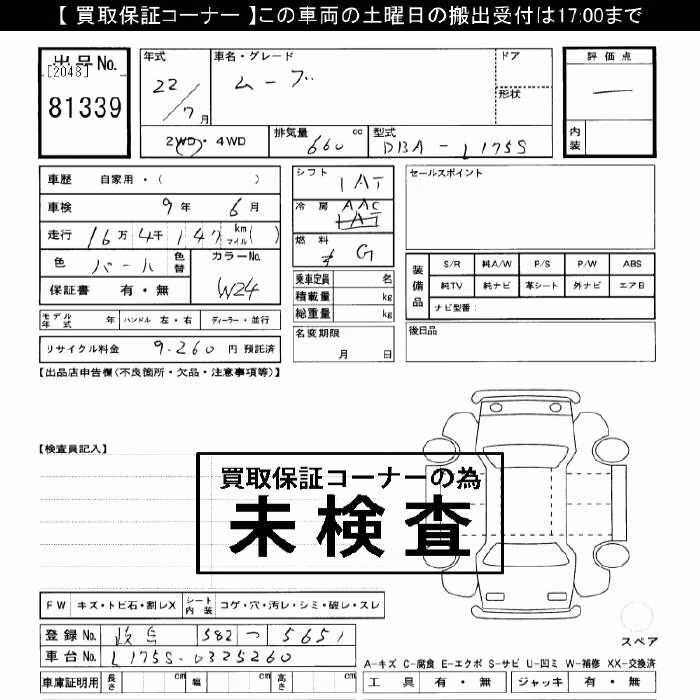 【 買取保証コーナー 】この車両の土曜日の搬出受付は17:00まで
出品No.
[2048]
81339
年式
22/7月
車名・グレード
ムーブ
ドア
形状
2WD・4WD
排気量
660 cc
型式
DBA-L175S
評価点
―
内装
車歴 自家用・( )
車検 9年 6月
走行 16万 4千 147 km マイル ( )
色 パール 色替
カラーNo.
W24
保証書 有・無
モデル年式 年 ハンドル 左・右 ディーラー・並行
リサイクル料金 9,260 円 預託済
シフト
IAT
冷房
AAC
IAT
燃料
G
乗車定員 名
積載量 kg
総重量 kg
名変期限
月 日
セールスポイント
装備品
S/R 純A/W P/S P/W ABS
純TV 純ナビ 革シート 外ナビ エアB
ナビ型番:
後日品
【出品店申告欄(不良箇所・欠品・注意事項等)】
【検査員記入】
買取保証コーナーの為
未検査
FW キズ・トビ石・割レX シート内装 コゲ・穴・汚レ・シミ・破レ・スレ
登録No. 582 つ 5651
車台No. L175S-0325260
車庫証明用 長さ cm 幅 cm 高さ cm
スペア
A-キズ C-腐食 E-エクボ S-サビ U-凹ミ W-補修 XX-交換済
工具 有・無 ジャッキ 有・無